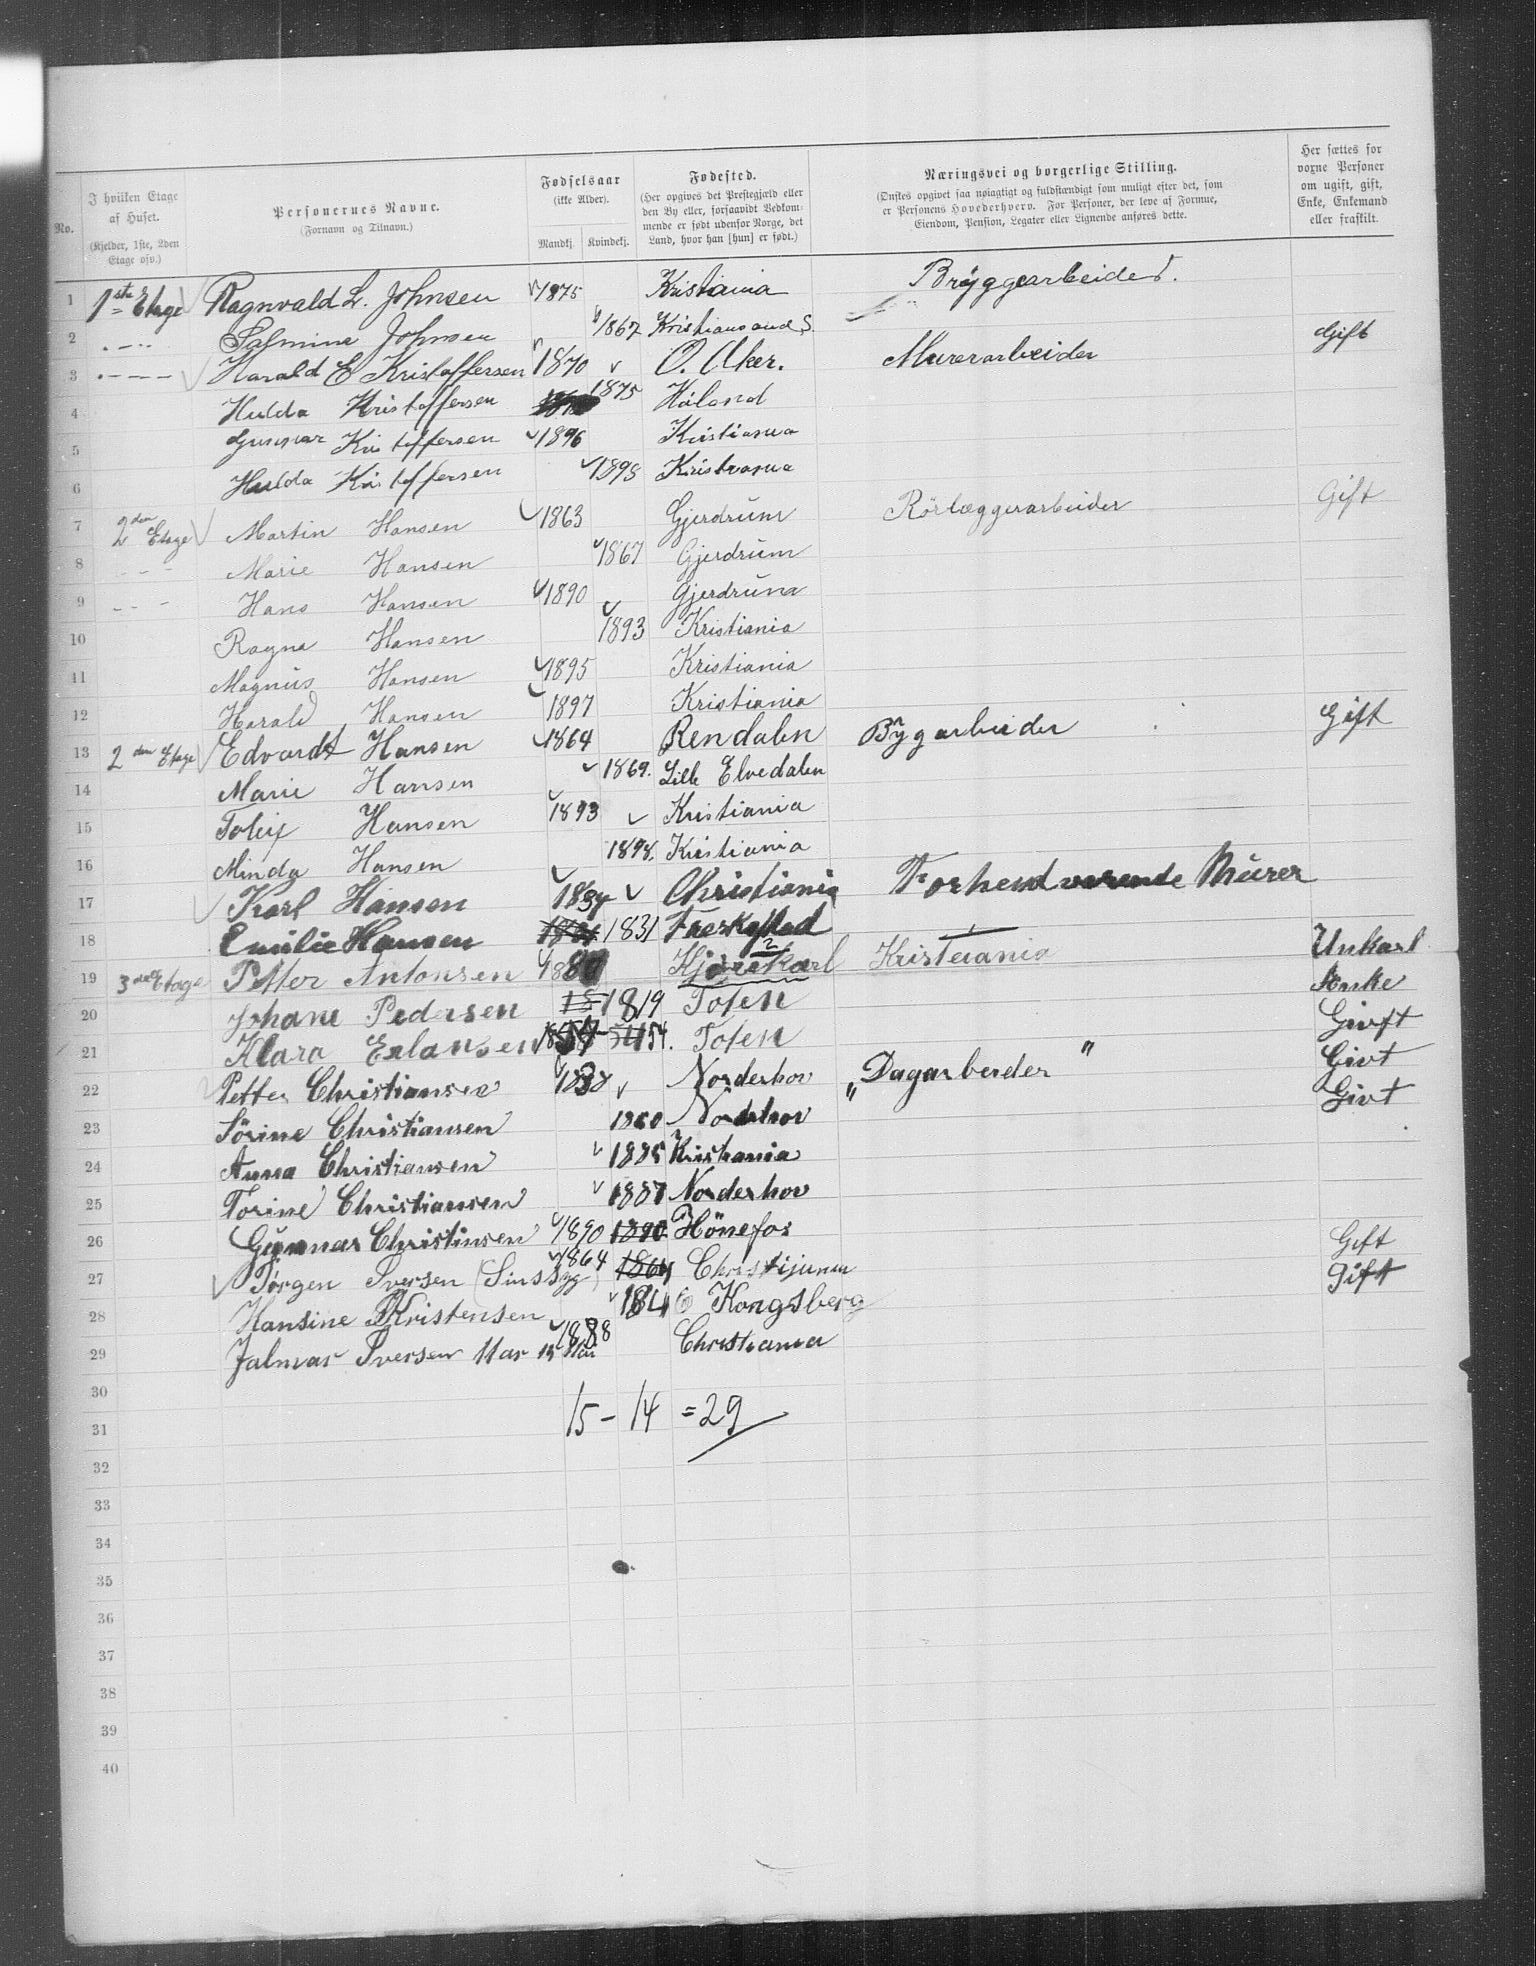 No.
I hvilken Etage af Huset.
(Kjelder, 1ste, 2den Etage osv.)
Personernes Navne.
(Fornavn og Tilnavn.)
Fødselsaar
(ikke Alder).
Mandkj. Kvindekj.
Fødested.
(Her opgives det Prestegjæld eller den By eller, forsaavidt Vedkommende er født udenfor Norge, det Land, hvor han [hun] er født.)
Næringsvei og borgerlige Stilling.
(Ønskes opgivet saa nøiagtigt og fuldstændigt som muligt efter det, som er Personens Hovederhverv. For Personer, der leve af Formue, Eiendom, Pension, Legater eller Lignende anføres dette.
Her sættes for voxne Personer om ugift, gift, Enke, Enkemand eller fraskilt.
1 1ste Etage Ragnvald L. Johnsen 1875 Kristiania Bryggearbeider.
2 Salmine Johnsen 1867 Kristiansand S.
3 Harald E Kristoffersen 1870 O. Aker. Murerarbeider Gift
4 Hulda Kristoffersen 1875 Høland
5 Gunnar Kristoffersen 1896 Kristiania
6 Hulda Kristoffersen 1898 Kristiania
7 2den Etage Martin Hansen 1863 Gjerdrum Rörlæggerarbeider Gift
8 Marie Hansen 1867 Gjerdrum
9 Hans Hansen 1890 Gjerdrum
10 Ragna Hansen 1893 Kristiania
11 Magnus Hansen 1895 Kristiania
12 Harald Hansen 1897 Kristiania
13 2den Etage Edvardt Hansen 1864 Rendalen Bygarbeider Gift
14 Marie Hansen 1869. Lille Elvedalen
15 Hansen 1893 Kristiania
16 Minda Hansen 1898. Kristiania
17 Karl Hansen 1834 Christiania Forhendverende Mürer
18 Emilie Hansen 1831
19 3die Etage Petter Antonsen 1880 Kjørekarl Kristiania Unkarl
20 Johane Pedersen 1819 Toten Enke
21 Klara Erlansen 54. Toten Givft
22 Petter Christiansen 1838 Norderhov „Dagarbeider" Givt
23 Sörine Christiansen 1860 Norderhov Givt
24 Anna Christiansen 1885 Kristiania
25 Torine Christiansen 1887 Norderhov
26 Gunnar Christinsen 1890 1890 Hönefos
27 Jørgen Iversen (Sinssyg) 1864 1864 Gift
28 Hansine Kristensen 184 Kongsberg Gift
29 Jalmar Iversen 11 aar 1888 Christiania
30
31 15 – 14 = 29
32
33
34
35
36
37
38
39
40